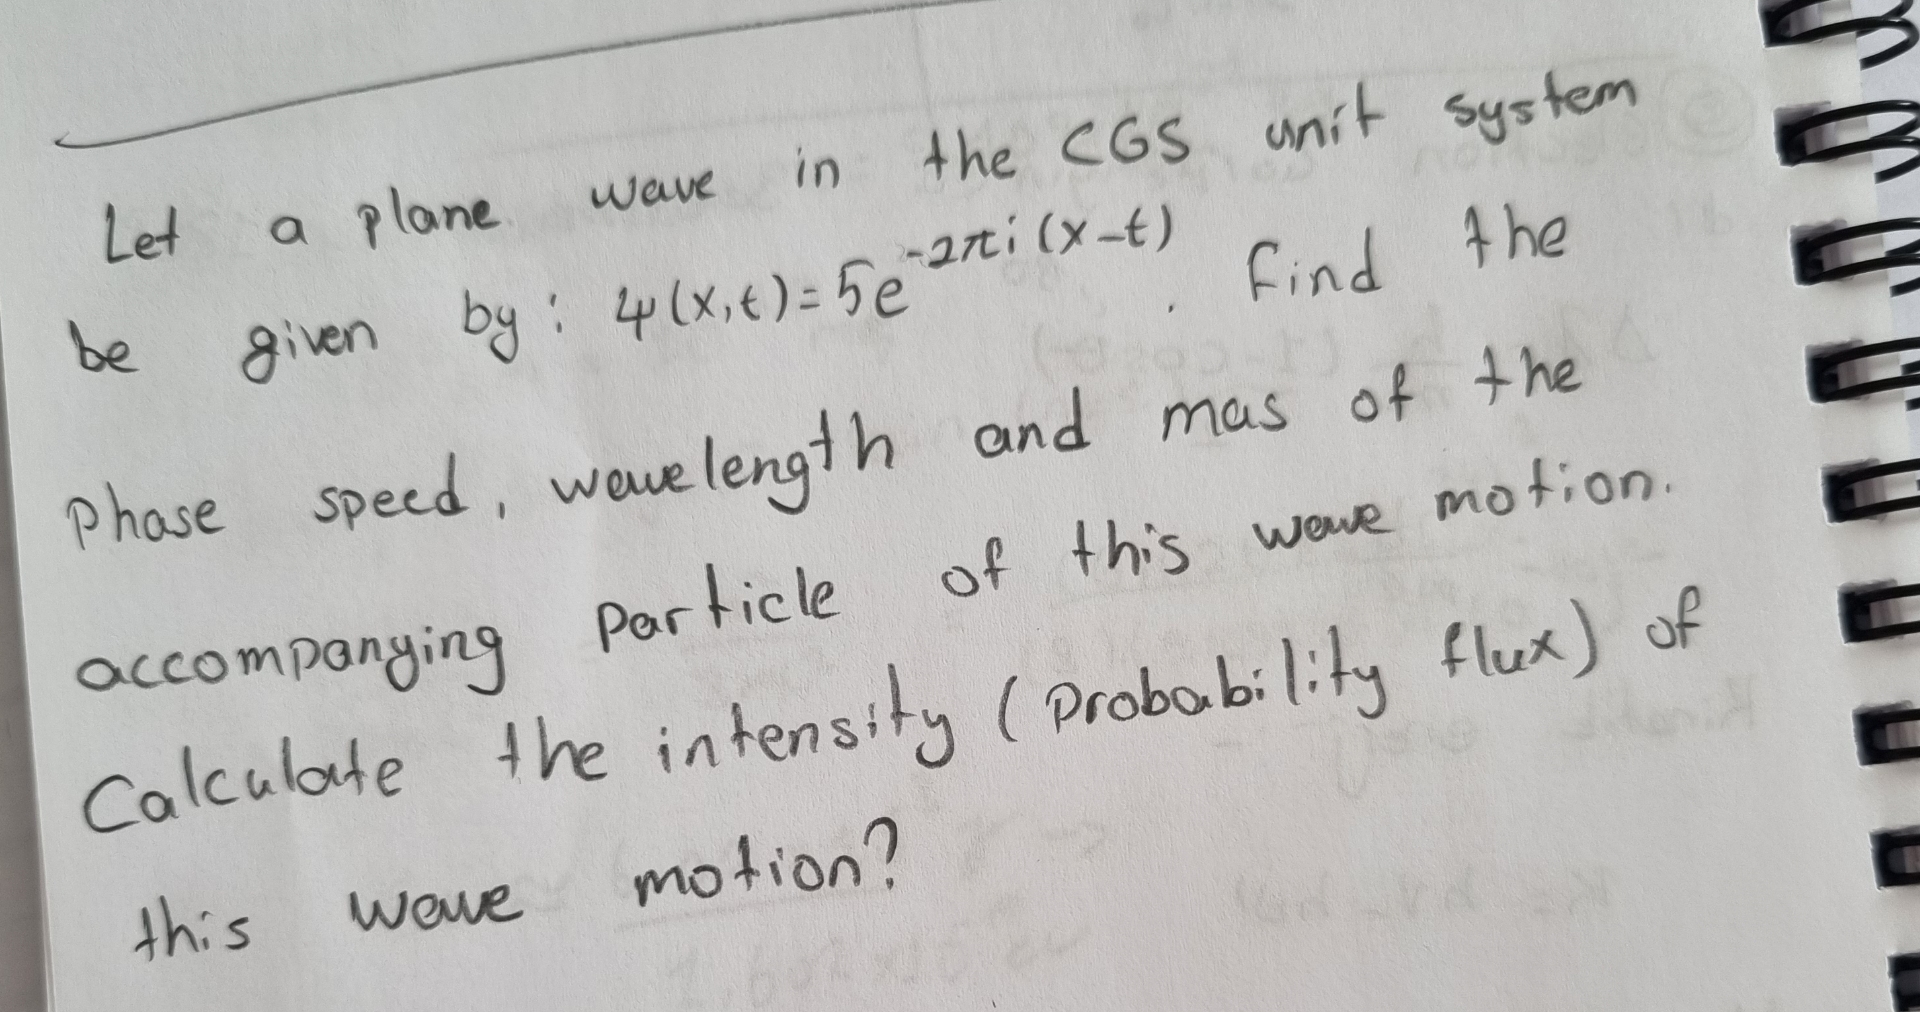 Let a plane wave in the CGS unit system
be given by: ψ(x,t)=5e^-2πi(x-t). Find the
Phase speed, wavelength and mas of the
accompanying particle of this wave motion.
Calculate the intensity (Probability flux) of
this wave motion?